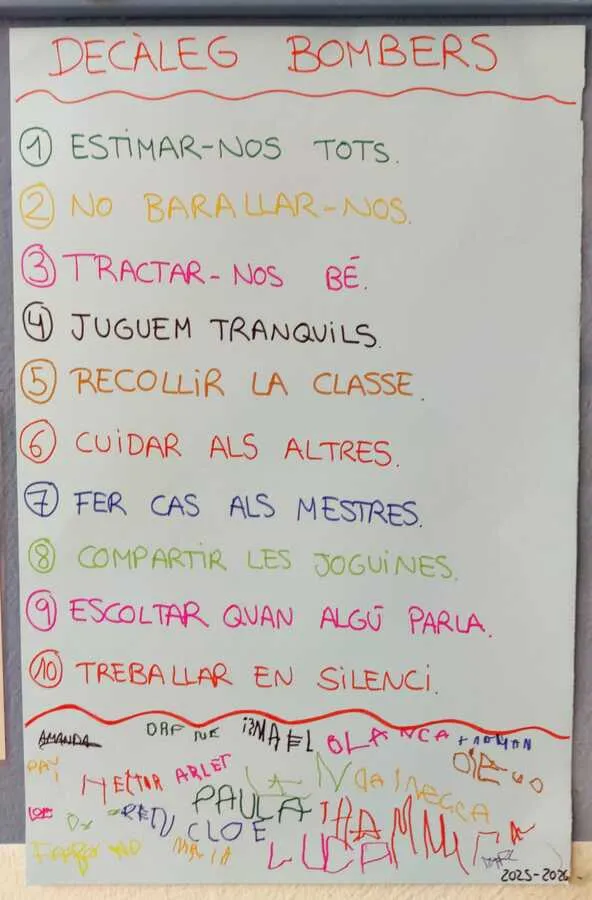 DECÀLEG BOMBERS
1 ESTIMAR-NOS TOTS.
2 NO BARALLAR-NOS.
3 TRACTAR-NOS BÉ.
4 JUGUEM TRANQUILS.
5 RECOLLIR LA CLASSE.
6 CUIDAR ALS ALTRES.
7 FER CAS ALS MESTRES.
8 COMPARTIR LES JOGUINES.
9 ESCOLTAR QUAN ALGÚ PARLA.
10 TREBALLAR EN SILENCI.
AMANDA DAFNE ISMAEL BLANCA
HECTOR ARLET
PAULA
CLOE
LUCA
2025-2026